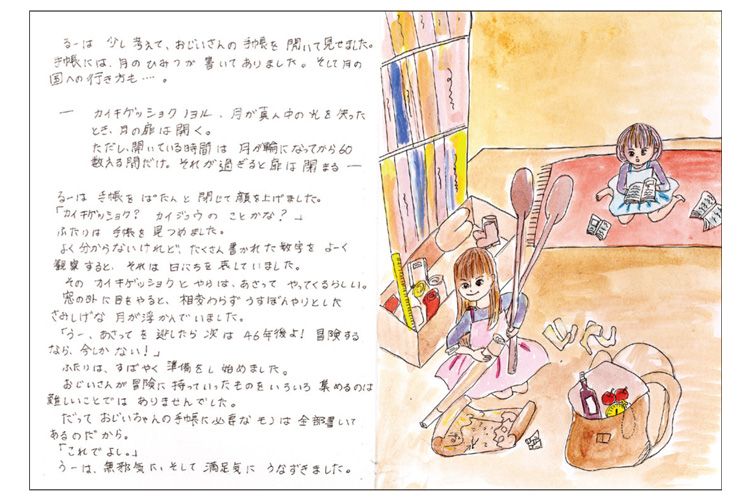 るーは 少し考えて、おじいさんの手帳を 開いて見せました。
手帳には、月のひみつが書いてありました。そして月の
国への行き方も…。
― カイキゲッショクノヨル、月が真ん中の光を失った
とき、月の扉は開く。
ただし、開いている時間は 月が輪になってから60
数える間だけ。それが過ぎると扉は閉まる ―
るーは 手帳を ぱたんと閉じて顔を上げました。
「カイキゲッショク? カイジュウの ことかな?」
ふたりは 手帳を見つめました。
よく分からないけれど、たくさん書かれた数字を よーく
観察すると、それは日にちを表していました。
その カイキゲッショクとやらは、あさって やってくるらしい。
窓の外に目をやると、相変わらず うすぼんやりとした
さみしげな 月が浮かんでいました。
「うー、あさってを逃したら 次は 46年後よ! 冒険する
なら、今しかない!」
ふたりは、すばやく 準備をし始めました。
おじいさんが冒険に持っていったものをいろいろ 集めるのは
難しいことでは ありませんでした。
だって おじいちゃんの手帳に必要な モノは全部書いて
あるのだから。
「これでよし。」
うーは、無邪気に、そして 満足気に うなずきました。